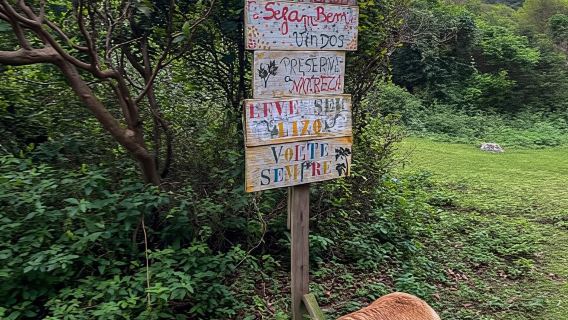 Sejam Bem
Vindos
PRESERVE
A NATUREZA
LEVE SEU
LIXO
VOLTE
SEMPRE